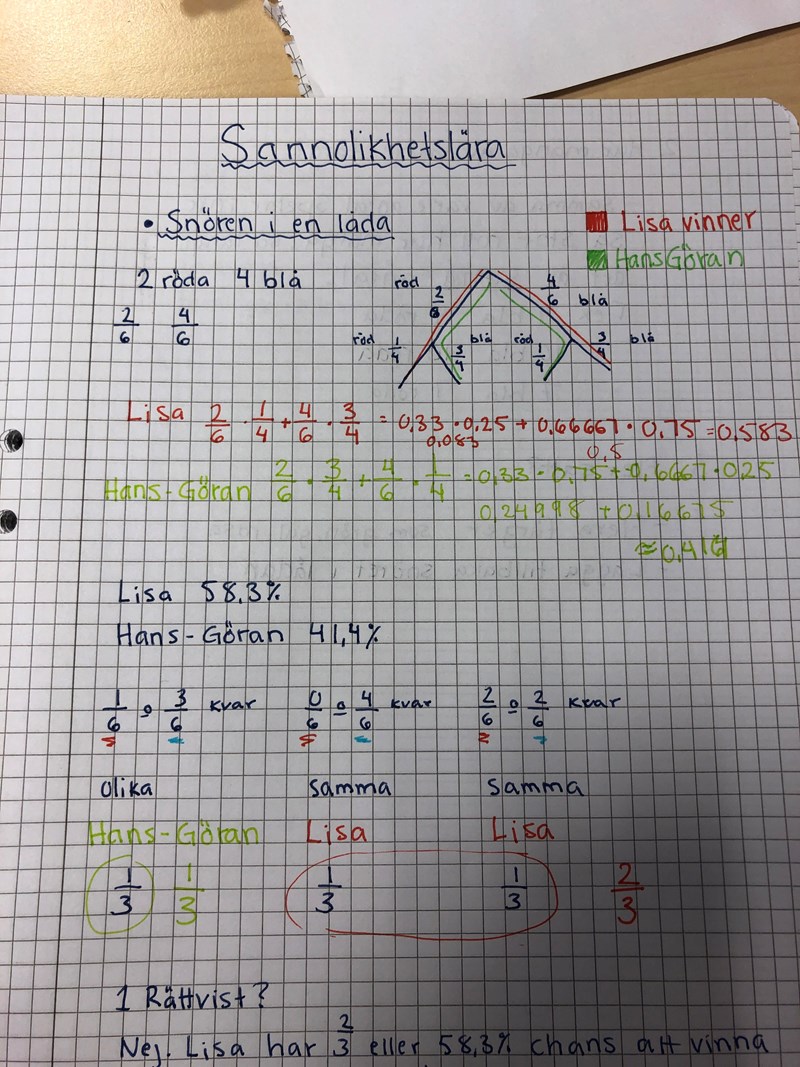 Sannolikhetslära
• Snören i en låda
Lisa vinner
HansGöran
2 röda 4 blå
2/6 4/6
röd 2/6 4/6 blå
röd 1/4 3/4 blå röd 1/4 3/4 blå
Lisa 2/6 · 1/4 + 4/6 · 3/4 = 0,33 · 0,25 + 0,66667 · 0,75 = 0,583
0,083 0,5
Hans-Göran 2/6 · 3/4 + 4/6 · 1/4 = 0,33 · 0,75 + 0,6667 · 0,25
0,24998 + 0,16675
Lisa 58,3%
Hans-Göran 41,4%
1/6 o 3/6 kvar 0/6 o 4/6 kvar 2/6 o 2/6 kvar
olika samma samma
Hans-Göran Lisa Lisa
1/3 1/3 1/3 1/3 2/3
1 Rättvist?
Nej. Lisa har 2/3 eller 58,3% chans att vinna